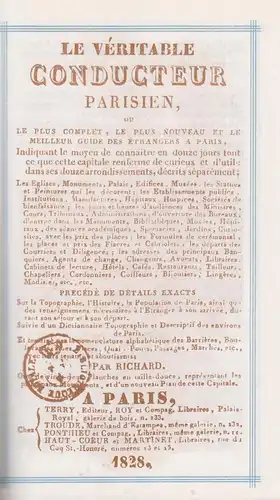 LE VÉRITABLE
CONDUCTEUR
PARISIEN,
OU
LE PLUS COMPLET, LE PLUS NOUVEAU ET LE
MEILLEUR GUIDE DES ÉTRANGERS A PARIS,
Indiquant le moyen de connaître en douze jours tout
ce que cette capitale renferme de curieux et d'utile
dans ses douze arrondissements, décrits séparément;
Les Eglises, Monuments, Palais, Edifices, Musées, les Statues
et Peintures qui les décorent; les Etablissements publics,
Institutions, Manufactures, Hôpitaux, Hospices, Sociétés de
bienfaisance; les jours et heures d'audience des Ministères
Cours, Tribunaux, Administrations d'ouverture des Bureaux,
d'entrée dans les Monuments, Bibliothèques, Musées,
des séances académiques, Spectacles, Jardins,
avec les prix des places les Formules de cérémonial,
les places et prix des Fiacres et Cabriolets, les départs des
Courriers et Diligences; les adresses des principaux
Agents de change, Changeurs, Avocats, Libraires,
Cabinets de lecture, Hôtels, Cafés, Restaurants, Tailleurs,
Chapeliers, Cordonniers, Coiffeurs, Bijoutiers, Lingères,
Modistes, etc., etc.
PRÉCÉDÉ DE DÉTAILS EXACTS
Sur la Topographie, l'Histoire, la Population de Paris, ainsi que
des renseignements nécessaires à l'Etranger à son arrivée, durant
son séjour et à son départ.
Suivie d'un Dictionnaire Topographie et Descriptif des environs
de Paris.
alphabétique des Barrières,
Quais, Ponts, Passages, Marchés, etc.,
et aboutissants
PAR RICHARD.
Planches en taille-douce, représentant les
et d'un nouveau Plan de cette Capitale.
A PARIS,
Chez
TERRY, Editeur, ROY et Compag., Libraires, Palais-
Royal, galerie de bois, n. 233.
TROUDE, Marchand d'Estampes, même galerie, n. 252.
PONTHIEU et Compag., Libraires, même galerie, n.
HAUT-COEUR et MARTINET, Libraires, rue du
Coq St-Honoré, numéros 13 et 15.
1828.